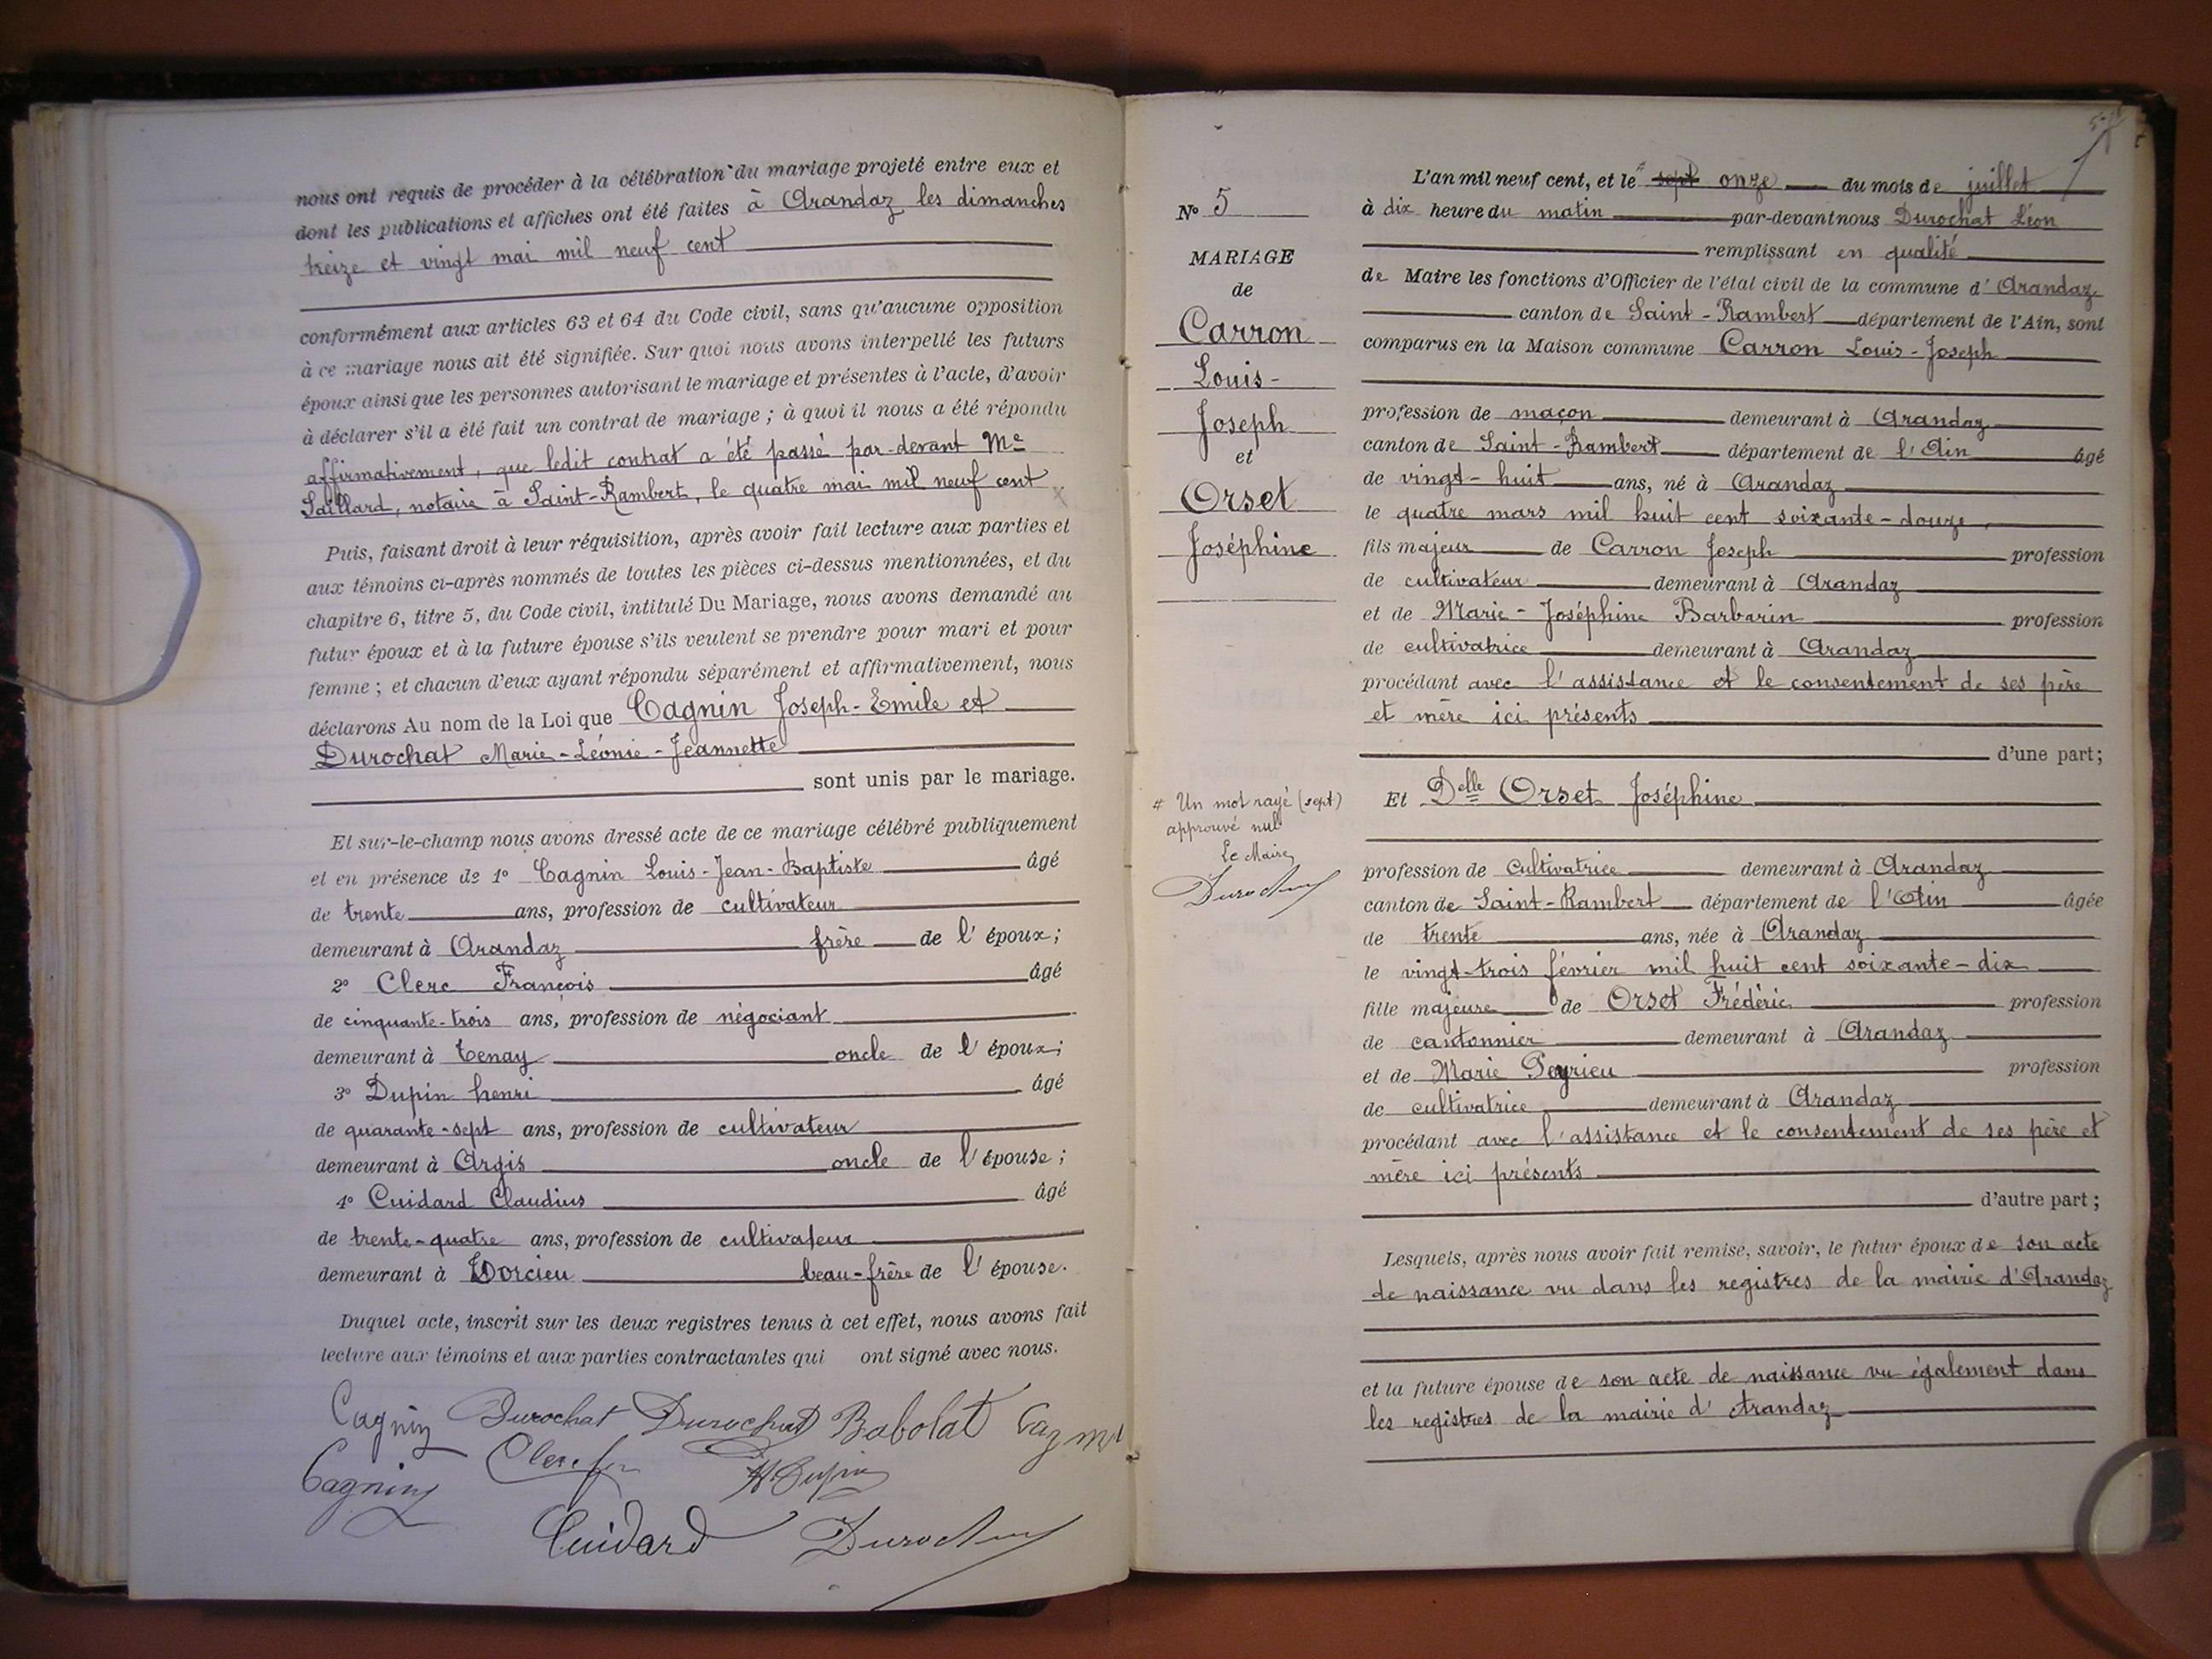 nous ont requis de procéder à la célébration du mariage projeté entre eux et
dont les publications et affiches ont été faites à Arandaz les dimanches
treize et vingt mai mil neuf cent
conformément aux articles 63 et 64 du Code civil, sans qu'aucune opposition
à ce mariage nous ait été signifiée. Sur quoi nous avons interpellé les futurs
époux ainsi que les personnes autorisant le mariage et présentes à l'acte, d'avoir
à déclarer s'il a été fait un contrat de mariage ; à quoi il nous a été répondu
affirmativement, que ledit contrat a été passé par-devant Me
Saillard, notaire à Saint-Rambert, le quatre mai mil neuf cent
Puis, faisant droit à leur réquisition, après avoir fait lecture aux parties et
aux témoins ci-après nommés de toutes les pièces ci-dessus mentionnées, et du
chapitre 6, titre 5, du Code civil, intitulé Du Mariage, nous avons demandé au
futur époux et à la future épouse s'ils veulent se prendre pour mari et pour
femme ; et chacun d'eux ayant répondu séparément et affirmativement, nous
déclarons Au nom de la Loi que Cagnin Joseph-Emile et
Durochat Marie-Léonie-Jeannette
sont unis par le mariage.
Et sur-le-champ nous avons dressé acte de ce mariage célébré publiquement
et en présence de 1° Cagnin Louis-Jean-Baptiste âgé
de trente ans, profession de cultivateur
demeurant à Arandaz frère de l'époux ;
2° Clerc François âgé
de cinquante-trois ans, profession de négociant
demeurant à Tenay oncle de l'époux ;
3° Dupin henri âgé
de quarante-sept ans, profession de cultivateur
demeurant à Argis oncle de l'épouse ;
4° Cuidard Claudius âgé
de trente-quatre ans, profession de cultivateur
demeurant à Dorcieu beau-frère de l'épouse.
Duquel acte, inscrit sur les deux registres tenus à cet effet, nous avons fait
lecture aux témoins et aux parties contractantes qui ont signé avec nous.
Cagnin Durochat Durochat Babolat
Cagnin Clerc H. Dupin
Cuidard Durochat
N° 5
MARIAGE
de
Carron
Louis-
Joseph
et
Orset
Joséphine
# Un mot rayé (sept)
approuvé nul
Le Maire
Durochat
L'an mil neuf cent, et le # sept onze du mois de juillet
à dix heure du matin par-devant nous Durochat Léon
remplissant en qualité
de Maire les fonctions d'Officier de l'état civil de la commune d'Arandaz
canton de Saint-Rambert département de l'Ain, sont
comparus en la Maison commune Carron Louis-Joseph
profession de maçon demeurant à Arandaz
canton de Saint-Rambert département de l'Ain âgé
de vingt-huit ans, né à Arandaz
le quatre mars mil huit cent soixante-douze
fils majeur de Carron Joseph profession
de cultivateur demeurant à Arandaz
et de Marie-Joséphine Barbarin profession
de cultivatrice demeurant à Arandaz
procédant avec l'assistance et le consentement de ses père
et mère ici présents
d'une part ;
Et Delle Orset Joséphine
profession de cultivatrice demeurant à Arandaz
canton de Saint-Rambert département de l'Ain âgée
de trente ans, née à Arandaz
le vingt-trois février mil huit cent soixante-dix
fille majeure de Orset Frédéric profession
de cantonnier demeurant à Arandaz
et de Marie Peyrieu profession
de cultivatrice demeurant à Arandaz
procédant avec l'assistance et le consentement de ses père et
mère ici présents
d'autre part ;
Lesquels, après nous avoir fait remise, savoir, le futur époux de son acte
de naissance vu dans les registres de la mairie d'Arandaz
et la future épouse de son acte de naissance vu également dans
les registres de la mairie d'Arandaz